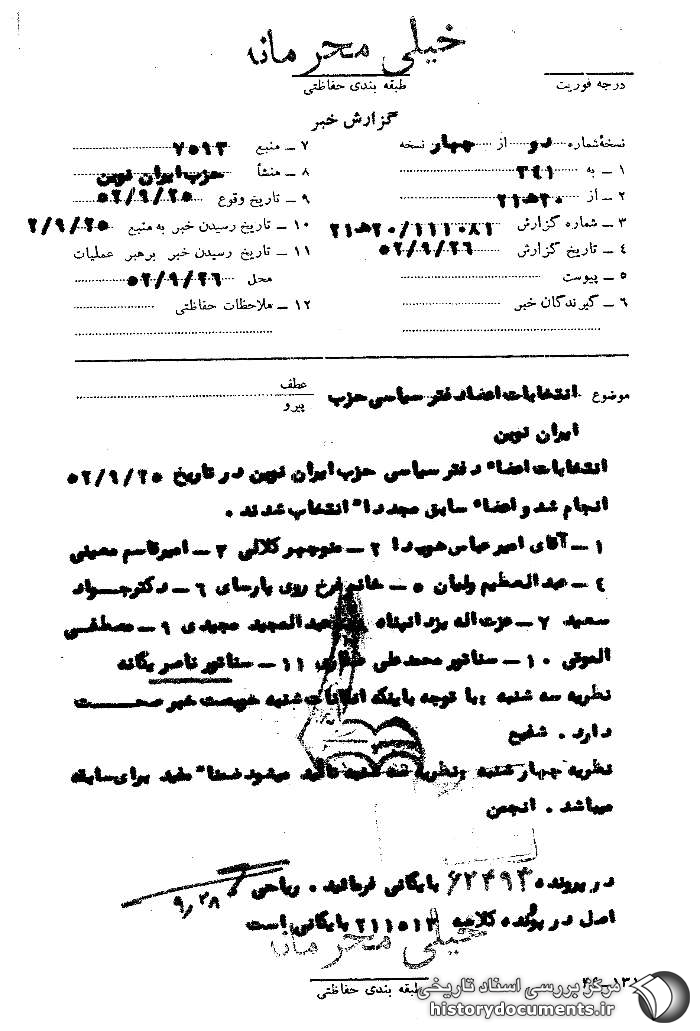 خیلی محرمانه
طبقه بندی حفاظتی
درجه فوریت
گزارش خبر
نسخهٔ شماره دو از چهار نسخه
۱ ــ به ۳٤۱
۲ ــ از ۲۰ه۲۱
۳ ــ شماره گزارش ۲۰/۱۱۱۰۸۱ه۲۱
٤ ــ تاریخ گزارش ۵۲/۹/۲٦
۵ ــ پیوست
٦ ــ گیرندگان خبر
۷ ــ منبع ۷۵۹۳
۸ ــ منشأ حزب ایران نوین
۹ ــ تاریخ وقوع ۵۲/۹/۲۵
۱۰ ــ تاریخ رسیدن خبر به منبع ۲/۹/۲۵
۱۱ ــ تاریخ رسیدن خبر برهبر عملیات
محل ۵۲/۹/۲٦
۱۲ ــ ملاحظات حفاظتی
موضوع انتخابات اعضاء دفتر سیاسی حزب
ایران نوین
عطف
پیرو
انتخابات اعضاء دفتر سیاسی حزب ایران نوین در تاریخ ۵۲/۹/۲۵
انجام شد و اعضاء سابق مجددا" انتخاب شدند .
۱ ــ آقای امیرعباس هویدا ۲ ــ منوچهر کلالی ۳ ــ امیرقاسم معینی
٤ ــ عبدالعظیم ولیان ۵ ــ خانم فرخ روی پارسای ٦ ــ دکتر جـواد
سعید ۷ ــ عزت اله یزدانپناه عبدالمجید مجیدی ۹ ــ مصطفـی
الموتی ۱۰ ــ سناتور محمدعلی صفاری ۱۱ ــ سناتور ناصر یگانه
نظریه سه شنبه : با توجه باینکه شنبه خبر صحـــت
دارد . شفیع
نظریه چهارشنبه : نظریه سه شنبه تائید میشود ضمنا" مفید برای سابقه
میباشد . انجمن
در پرونده ٦۲٤۹۳ بایگانی فرمائید . ریاحی
۹٫۲۸
اصل در پرونده کلاسه ۲۱۱۵۱۳ بایگانی است
خیلی محرمانه
طبقه بندی حفاظتی
مرکز بررسی اسناد تاریخی
historydocuments.ir